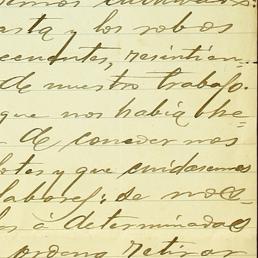 asta y los robos
ecuentes, resintien=
de nuestro trabajo.
que nos había he=
de conceder nos
lotes y que cuidasemos
labores; de noes=
los á determinados
ordena retirar